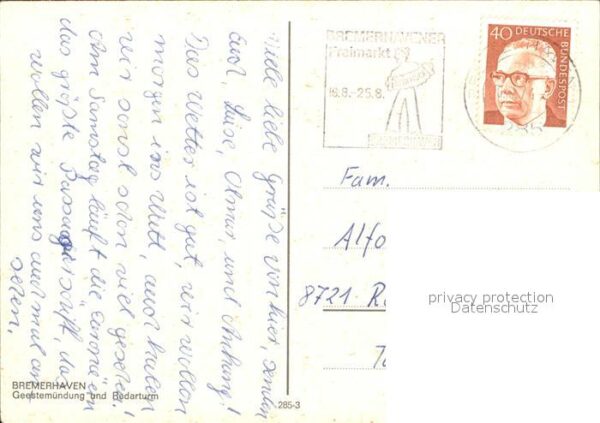 Viele liebe Grüße von hier, senden
Euch Luise, Otmar, und Anhang!
Das Wetter ist gut, wir wollen
morgen ins Watt, auch haben
wir sonst schon viel gesehen!
Am Samstag läuft die Europa ein
das größte Passagierschiff, da
wollen wir uns auch mal an-
sehen.
BREMERHAVEN
Geestemündung und Radarturm
285-3
BREMERHAVENER
Freimarkt
16.8.-25.8.
40 DEUTSCHE
BUNDESPOST
Fam.
Alfo
8721 -
privacy protection
Datenschutz